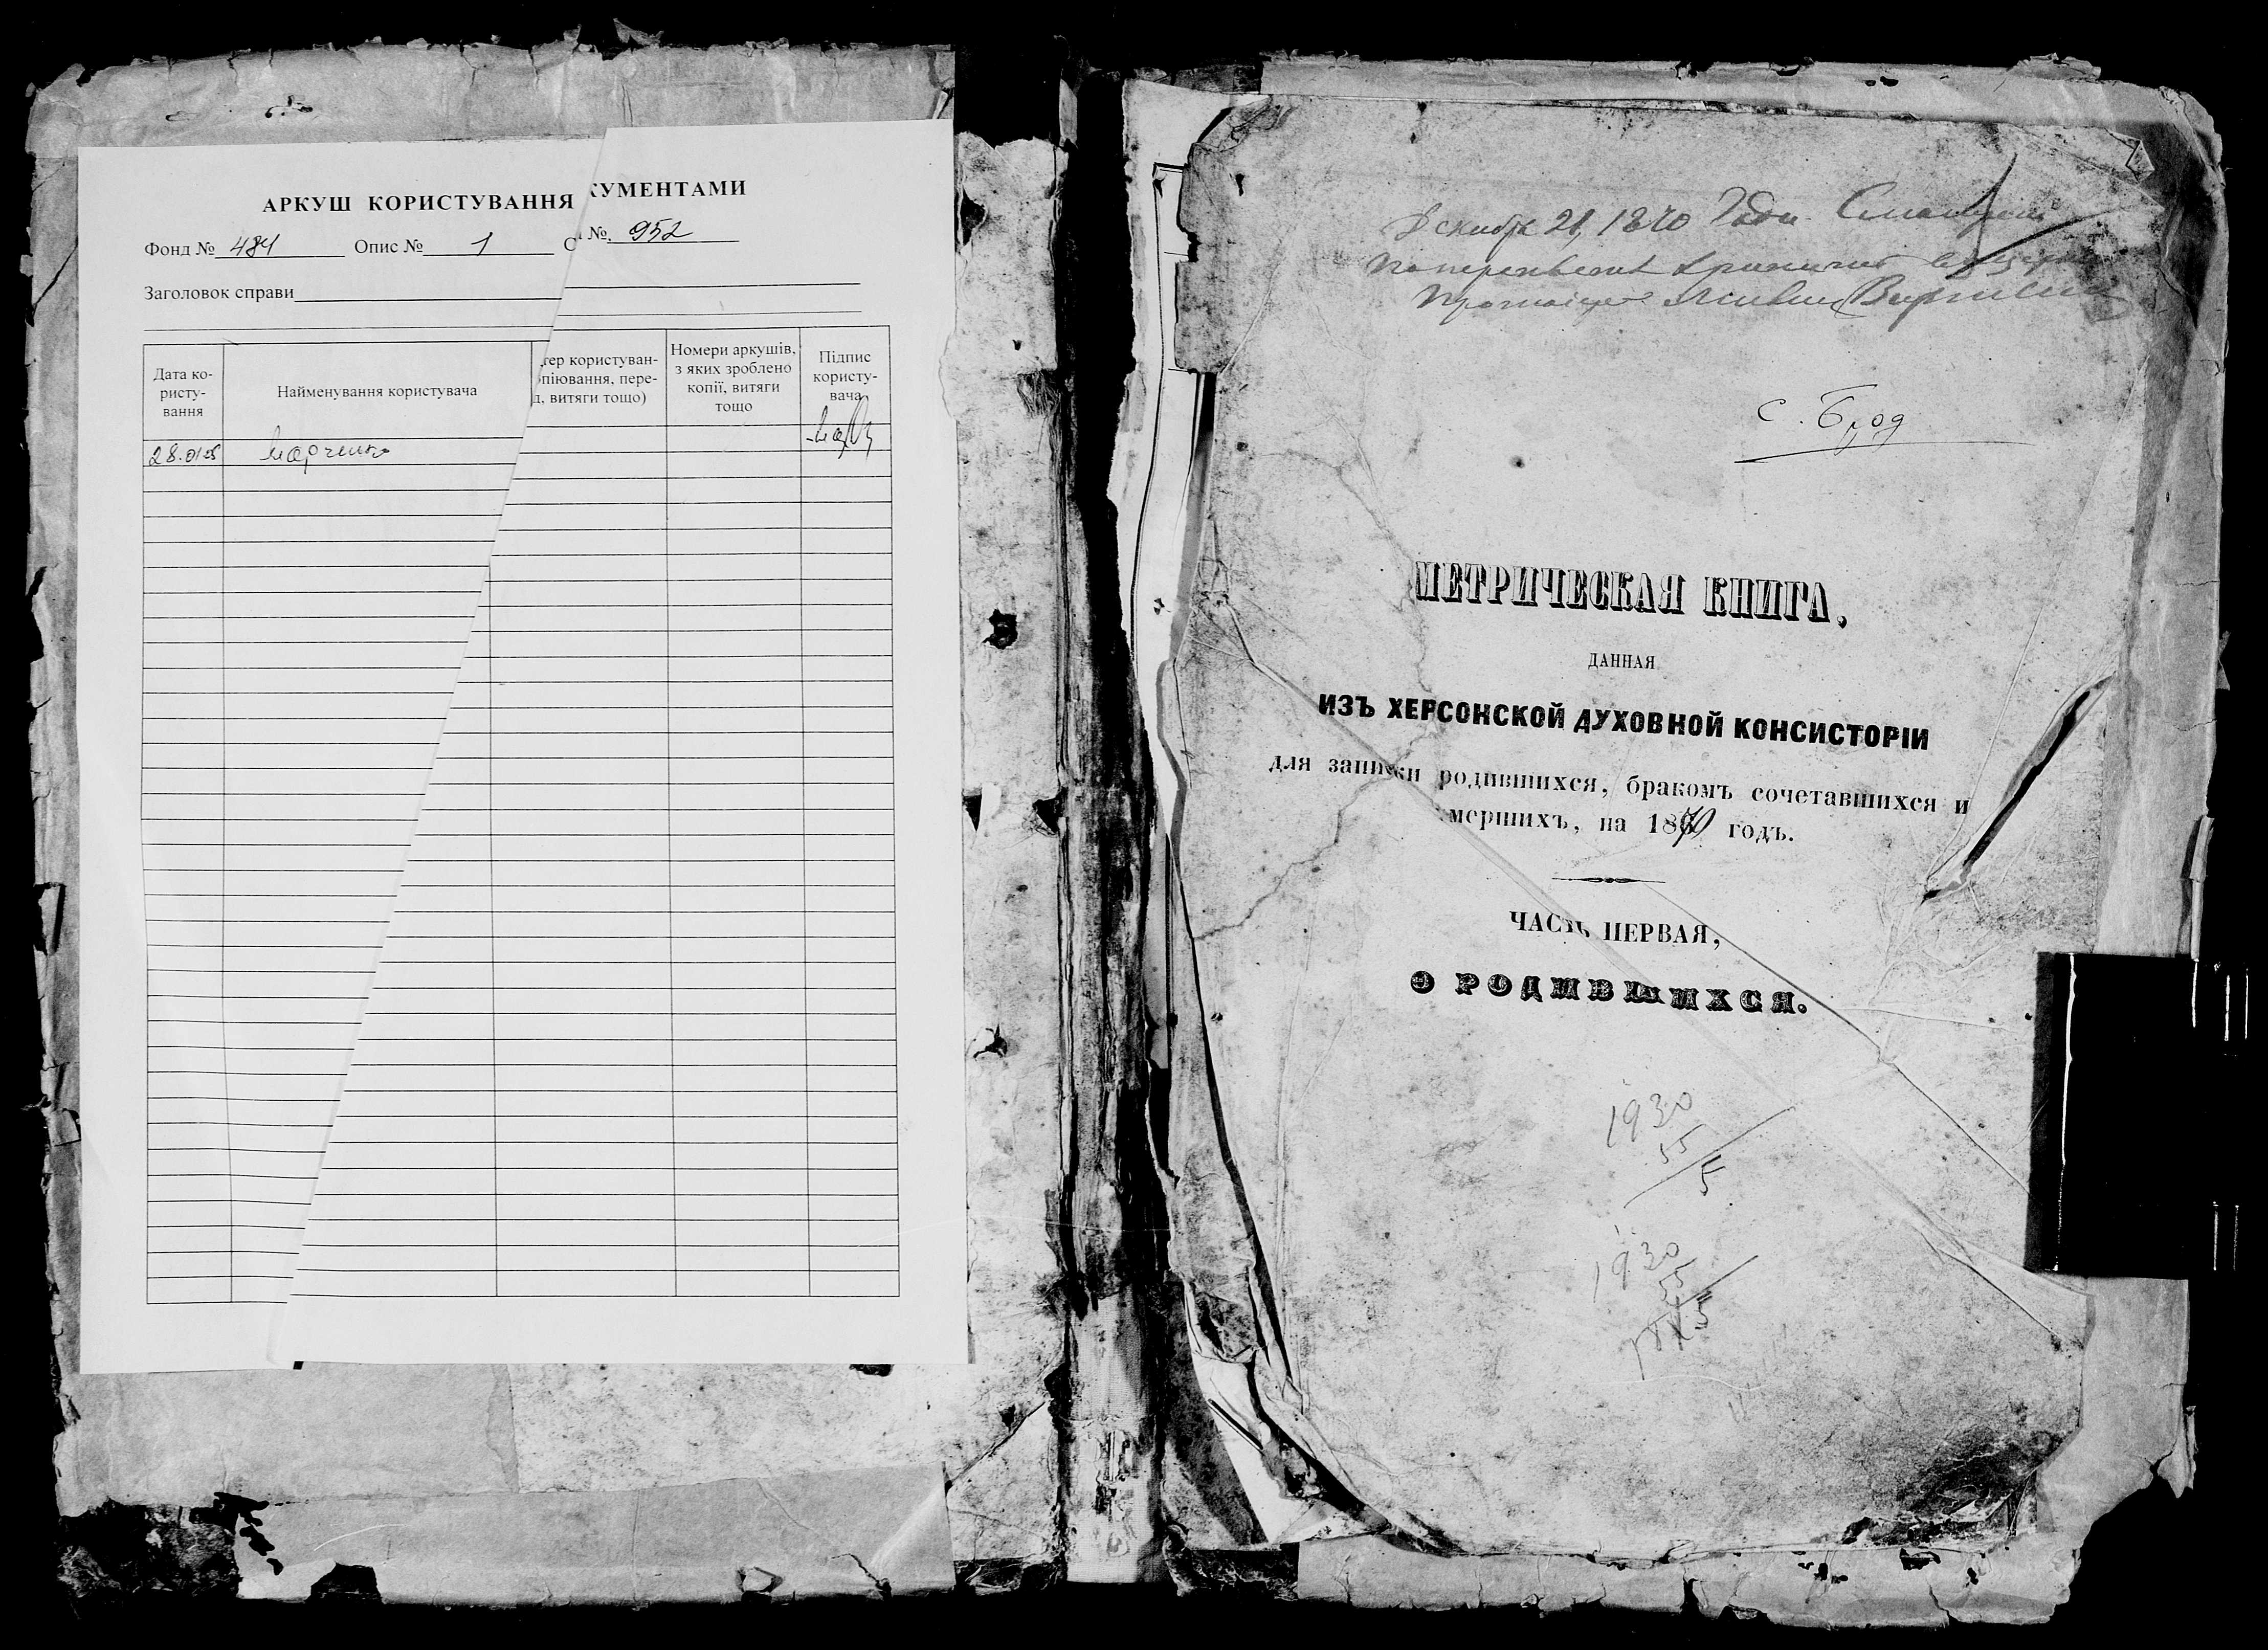 АРКУШ КОРИСТУВАННЯ КУМЕНТАМИ
Фонд № 484 Опис № 1 С № 952
Заголовок справи
Дата ко-
ристу-
вання
Найменування користувача
тер користуван-
піювання, пере-
д, витяги тощо)
Номери аркушів,
з яких зроблено
копії, витяги
тощо
Підпис
користу-
вача
28.01.25 Марченко
Декабря 21, 1870 Года
с. Брод
МЕТРИЧЕСКАЯ КНИГА,
ДАННАЯ
ИЗЪ ХЕРСОНСКОЙ ДУХОВНОЙ КОНСИСТОРІИ
для записки родившихся, бракомъ сочетавшихся и
мершихъ, на 1870 годъ.
ЧАСТЬ ПЕРВАЯ,
О РОДИВШИХСЯ.
1930
55
5
1930
55